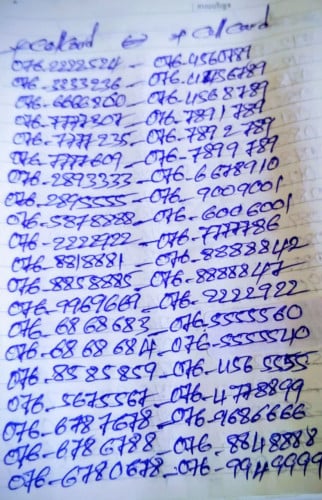 * Call card ⊖ * Call Card
076-2222584 - 076-4560789
076-3333236 - 076-4456789
076-6666800 - 076-4568789
076-7777807 - 076-7891789
076-7777235 - 076-7892789
076-7777609 - 076-7899789
076-2893333 - 076-6678910
076-2895555 - 076-9009001
076-5878888 - 076-6006001
076-2222722 - 076-7777786
076-8818881 - 076-8888842
076-8858885 - 076-8888847
076-9969669 - 076-2222922
076-6868683 - 076-5555560
076-6868684 - 076-5555540
076-8585859 - 076-4565555
076-5675567 - 076-4778899
076-6787678 - 076-9686666
076-6786788 - 076-8848888
076-6780678 - 076-9949999